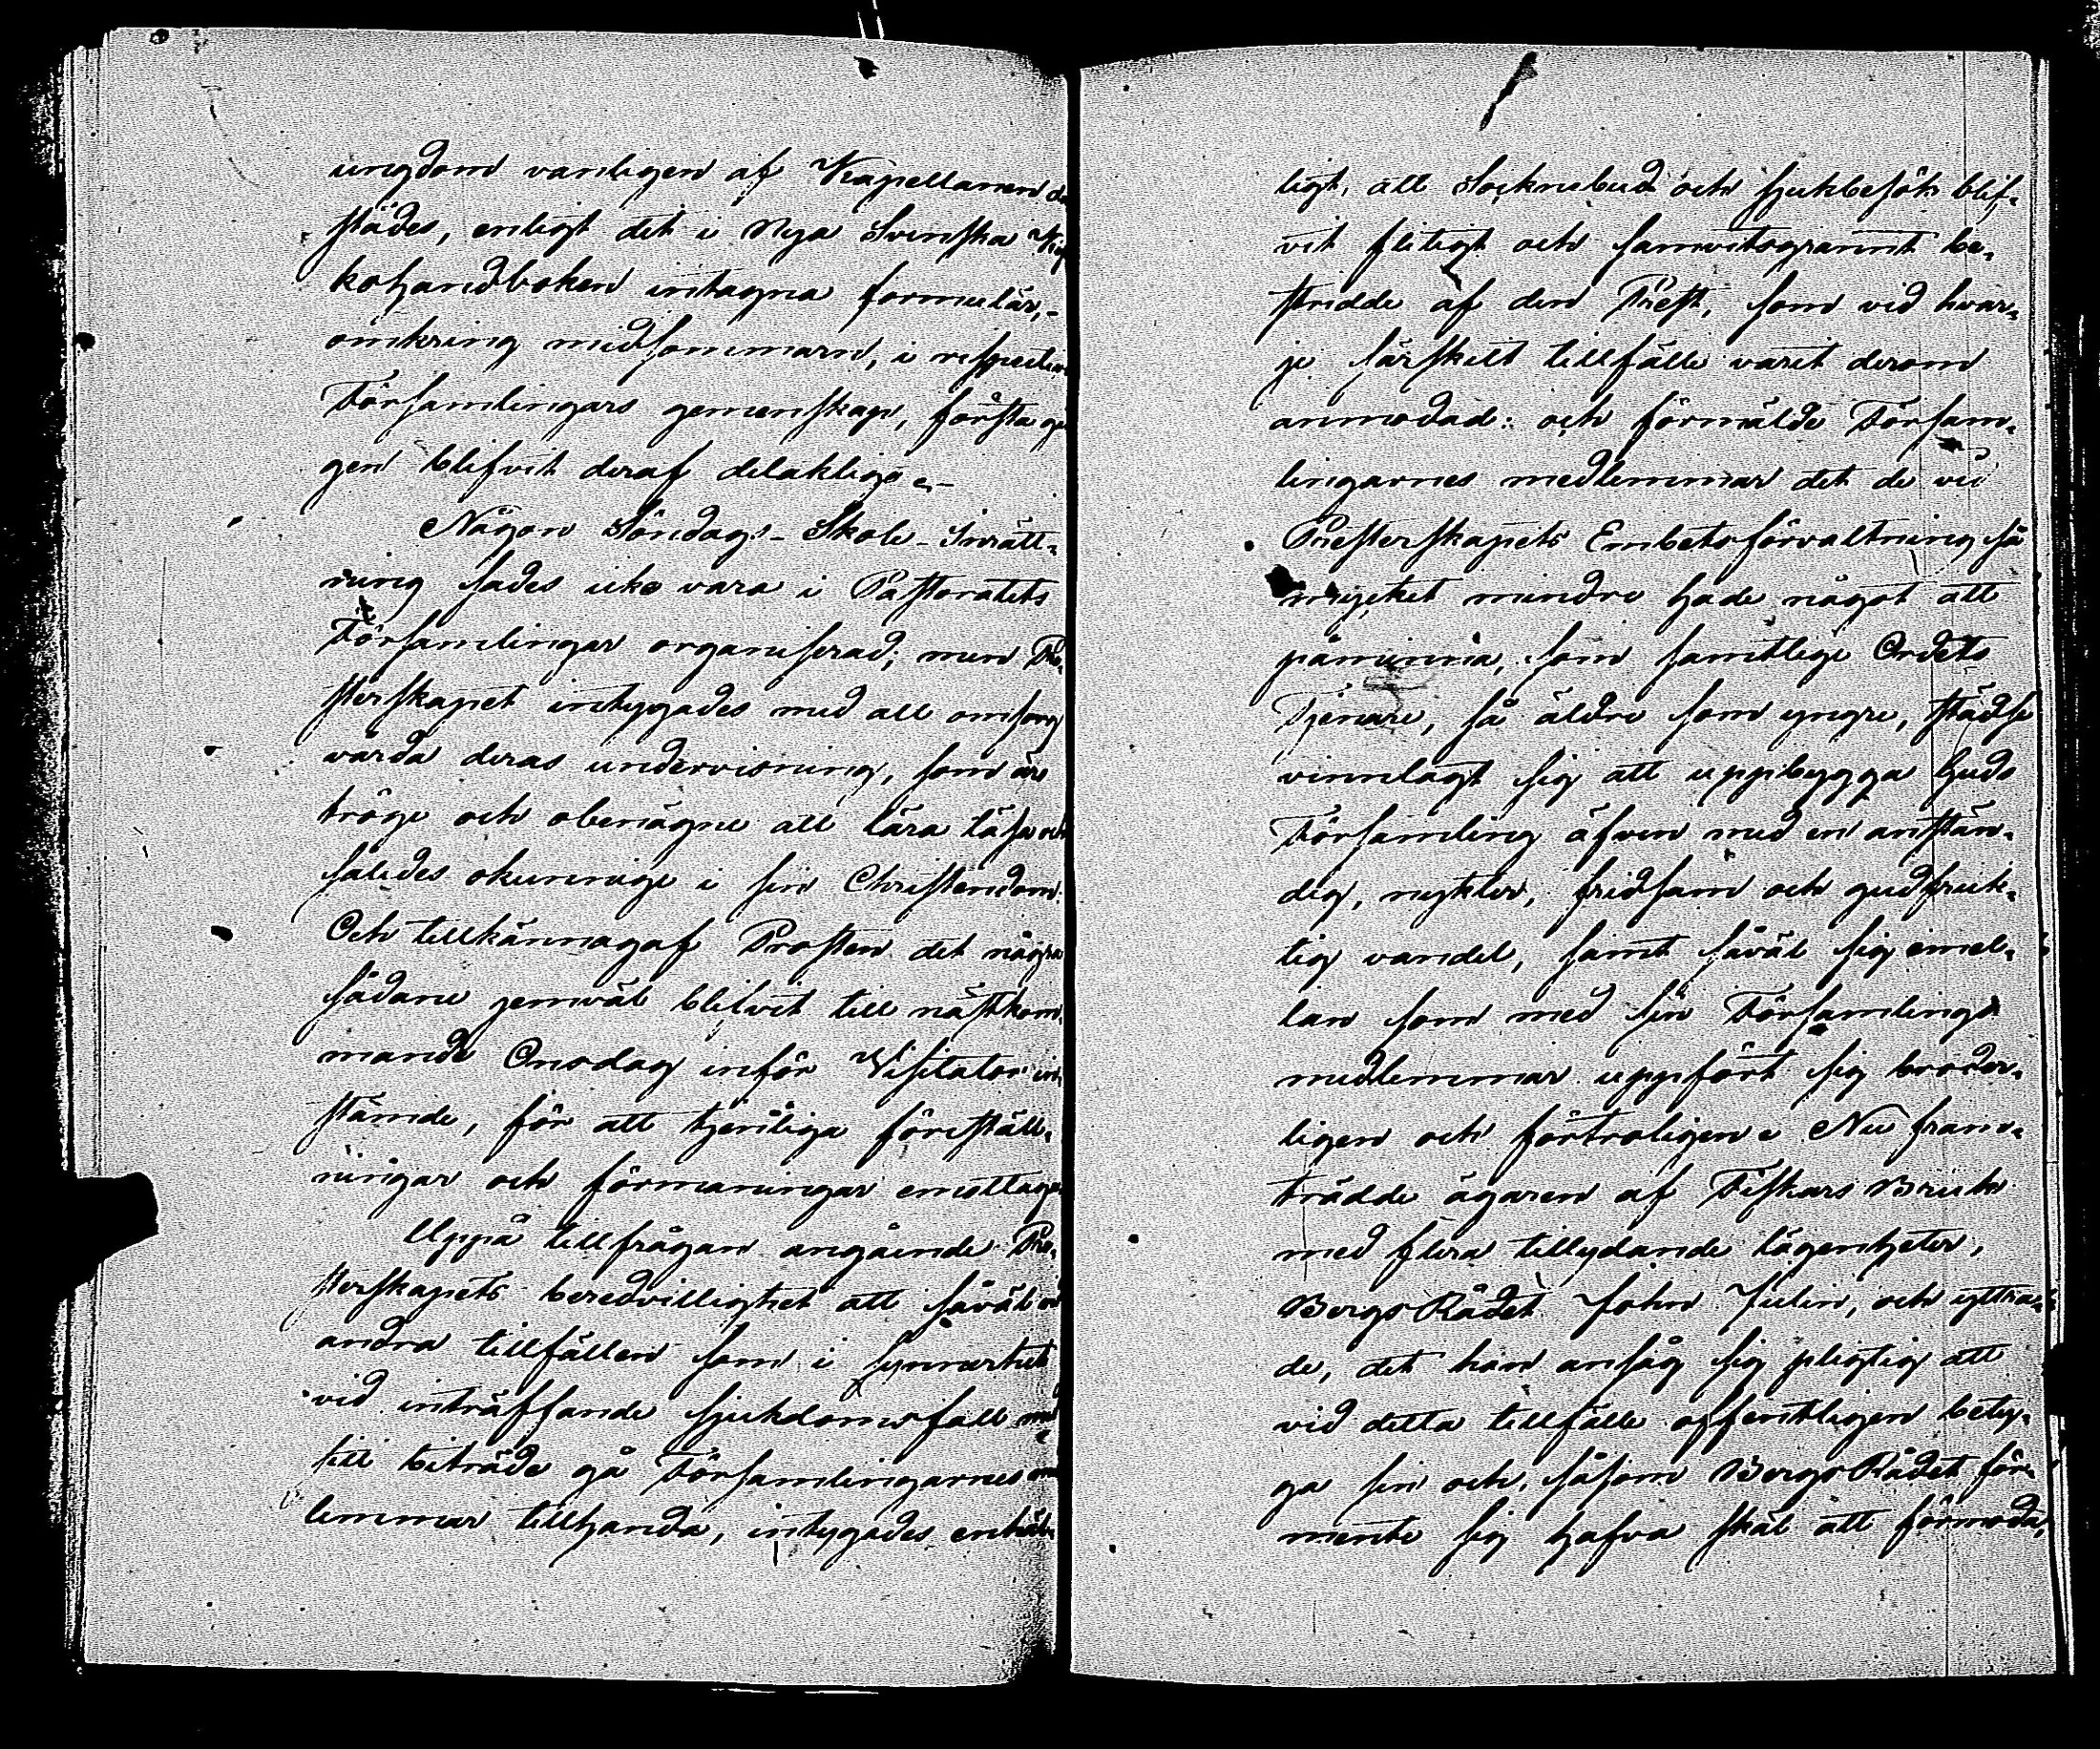 ungdom vanligen af Kapellanen
städes, enligt det i Nya Svenska
kohandboken intagna formulär,-
omkring midsommarn, i respective
Församlingars gemenskap, första
gen blifvit deraf delaktige.-
Någon Söndags-Skole-Inrätt-
ning sades icke vara i Pastoratets
Församlingar organiserad; men Pre-
sterskapet intygades med all omsorg
vårda deras undervisning, som äro
tröge och obenägne att lära läsa och
således okunnige i sin Christendom.
Och tillkännagaf Prosten det några
sådane jemväl blifvit till nästkom-
mande Onsdag inför Visitator in-
stämde, för att tjenliga föreställ-
ningar och förmaningar emottaga
Uppå tillfrågan angående Pre-
sterskapets beredvillighet att såväl vid
andra tillfällen som i synnerhet
vid inträffande sjukdomsfall med
till biträde gå Församlingarnes
lemmar tillhanda, intygades enhäl-
ligt, att Socknebud och sjukbesök blif-
vit flitigt och samvitsgrannt be-
stridde af den Prest, som vid hvar-
je särskilt tillfälle varit derom
anmodad: och förmälde Försam-
lingarnes medlemmar det de vid
Presterskapets Embetsförvaltning så
mycket mindre hade något att
påminna, som samtlige Ordets
Tjenare, så äldre som yngre, städse
vinnlagt sig att uppbygga Guds
Församling äfven med en anstän-
dig, nykter, fridsam och gudfruk-
tig vandel, samt såväl sig emel-
lan som med sin Församlings
medlemmar uppfört sig broder-
ligen och förtroligen. Nu fram-
trädde ägaren af Fiskars Bruk
med flera tillydande lägenheter,
BergsRådet John Julin, och yttra-
de, det han ansåg sig pligtig att
vid detta tillfälle offentligen bety-
ga sin och, såsom BergsRådet för-
mente sig hafva skäl att förmoda,